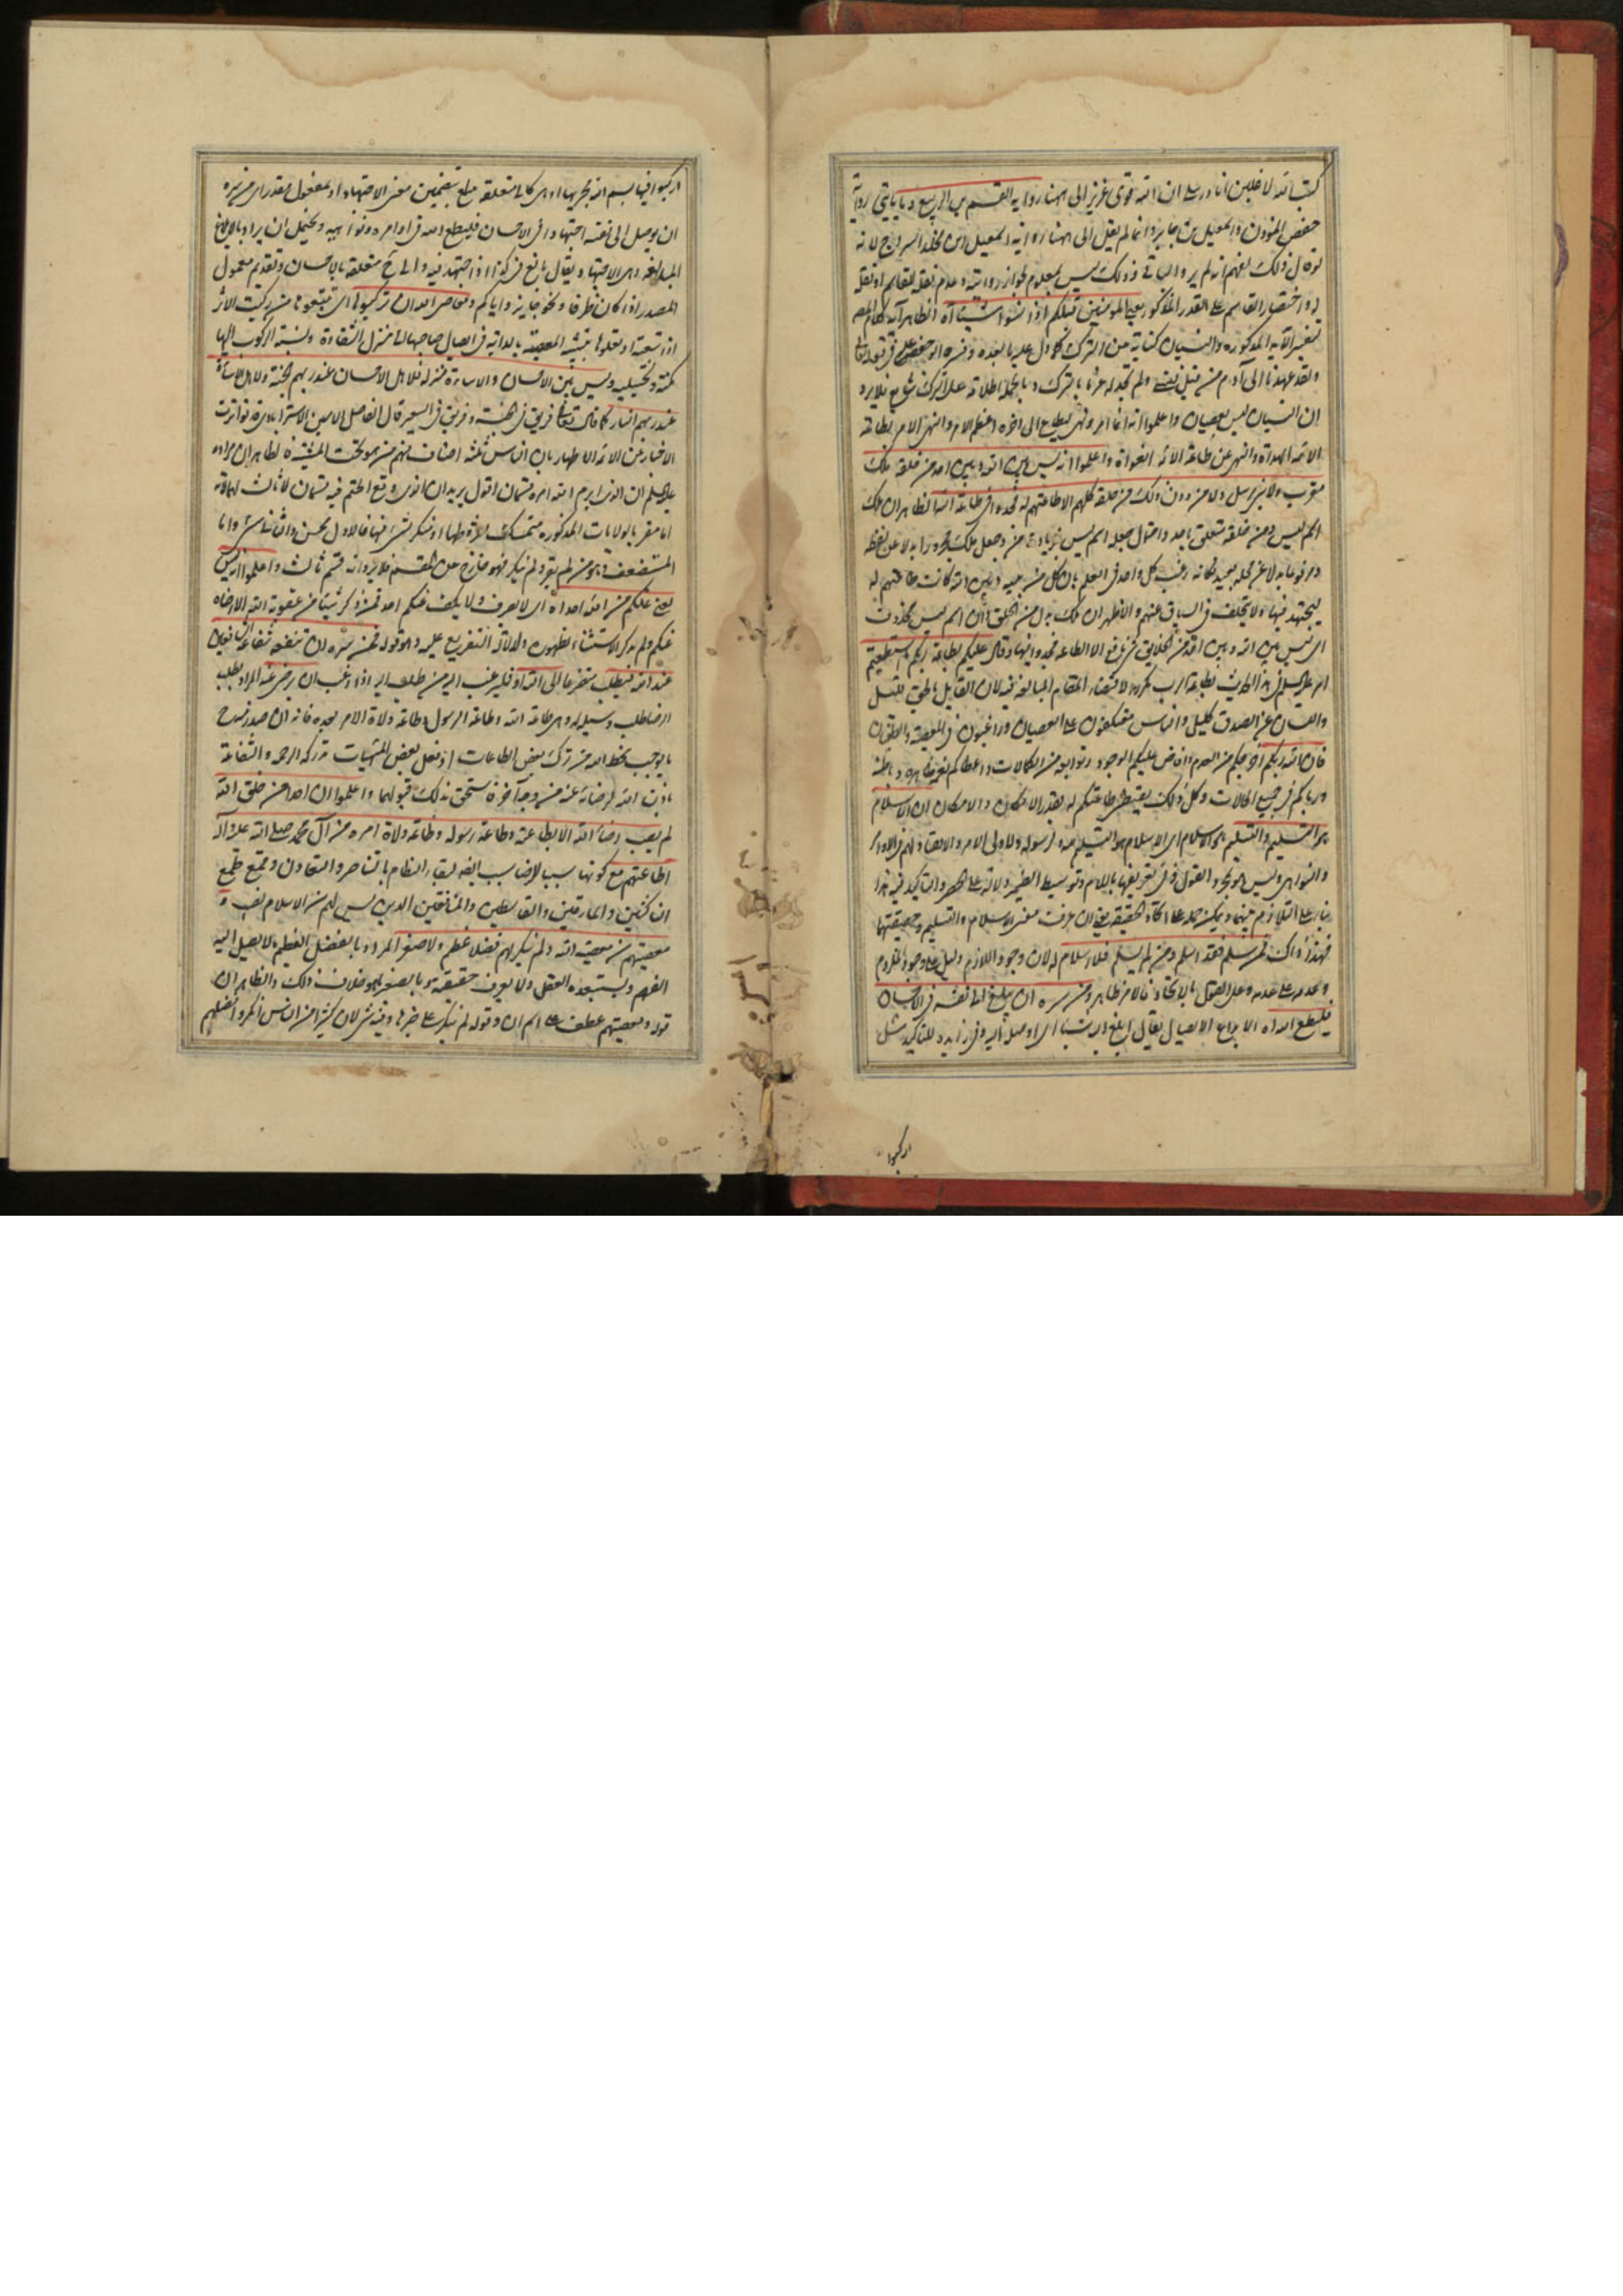 كتب الله لاغلبن انا ورسلي ان الله قوي عزيز الى ههنا رواية القسم بن الربيع وما ياتي رواية
حفص المؤذن واسمعيل بن جابر وانما لم يقل الى ههنا رواية اسمعيل بن مخلد السراج لانه
لو قال ذلك لفهم انه لم يرو الباقي وذلك ليس بمعلوم لجواز روايته وعدم نقله للقاسم او نقله
له واختصار القاسم على القدر المذكور يعني المؤمنين قبلكم اذا نسوا شيئا آه الظاهر انه كلام المص
تفسير الآية المذكورة والنسيان كناية عن الترك كما دل عليه ما بعده وفسره ابو جعفر عليه السلام في قوله تعالى
ولقد عهدنا الى آدم من قبل فنسي ولم نجد له عزما بالترك وبالجملة اطلاقه على الترك شايع فلا يرد
ان النسيان ليس بعصيان واعلموا انه انما امر ونهى ليطاع الى آخره اعظم الامر والنهي الامر بطاعة
الائمة الهداة والنهي عن طاعة الائمة الغواة واعلموا انه ليس بين الله وبين احد من خلقه ملك
مقرب ولا نبي مرسل ولا من دون ذلك من خلقه كلهم الا طاعتهم له فجدوا في طاعة الله الظاهر ان ملك
اسم ليس ومن خلقه متعلق باحد واحتمال جعله اسم ليس بزيادة من وجعل ملك مجرورا بدلا عن لفظه
ومرفوعا بدلا عن محله بعيد فكانه رغب كل واحد في العلم بان كل من بينه وبين الله كانت طاعتهم له
ليجتهد فيها ولا يتخلف في السباق عنهم والاظهر ان ملك بدل من الخلق وان اسم ليس محذوف
اي ليس بين الله وبين احد من الخلايق شيء نافع الا الطاعة فجدوا فيها وقال عليكم بطاعة ربكم ما استطعتم
امر عليه السلم في هذا الحديث بطاعة الرب مكررا لاقتضاء المقام المبالغة فيه لان القابل بالحق قليل
واللسان عن الصدق كليل والناس معتكفون على العصيان وراغبون في المعصية والطغيان
فان الله ربكم اخرجكم من العدم وافاض عليكم الوجود وتوابعه من الكمالات واعطاكم نعمه ظاهرة وباطنة
ورباكم في جميع الحالات وكل ذلك يقتضي طاعتكم له بقدر الامكان والامكان ان الاسلام
هو التسليم والتسليم هو الاسلام اي الاسلام هو التسليم لله ولرسوله ولاولي الامر والانقياد لهم في الاوامر
والنواهي وليس هو مجرد القول وفي تعريفهما باللام وتوسيط الضمير دلالة على الحصر والتاكيد فيه هذا
بناء على التلازم بينهما ويمكن حمله على اتحاد الحقيقة يعني ان عرفت معنى الاسلام والتسليم وحقيقتهما
فهذا ذاك فمن سلم فقد اسلم ومن لم يسلم فلا اسلام له لان وجود اللازم دليل على وجود الملزوم
وعدمه على عدمه وعلى القول بالاتحاد فالامر ظاهر ومن سره ان يبلغ الى نفسه في الاحسان
فليطع الله اه الابلاغ الايصال يقال ابلغ اليه شيئا اي اوصل اليه وفي زايدة للتاكيد مثل
اركبوا
اركبوا فيها بسم الله مجريها اوهي كالى متعلقة بيبلغ بتضمين معنى الاجتهاد او بمفعول مقدر اي من سره
ان يوصل الى نفسه اجتهادا في الاحسان فليطع الله في اوامره ونواهيه ويحتمل ان يراد بالابلاغ
المبالغة وهي الاجتهاد يقال بالغ في كذا اذا اجتهد فيه والى ح متعلقة بالاحسان وتقديم معمول
المصدر اذا كان ظرفا ونحوه جايز واياكم ومعاصي الله ان تركبوها اي تتبعوها من ركبت الاثر
اذا تبعته او تعلوها بتشبيه المعصية بالدابة في ايصال صاحبها الى منزل الشقاوة ونسبة الركوب اليها
مكنية وتخييلية وليس بين الاحسان والاساءة منزلة فلاهل الاحسان عند ربهم الجنة ولاهل الاساءة
عند ربهم النار كما قال تعالى فريق في الجنة وفريق في السعير قال الفاضل الامين الاسترابادي تواترت
الاخبار عن الائمة الاطهار بان الناس ثلثة اصناف منهم من هو تحت المشية اه الظاهر ان مراده
عليه السلم ان الذي ابرم الله امره قسمان اقول يريد ان الذي وقع الحتم فيه قسمان لا ثالث لهما لانه
اما مقر بالولايات المذكورة متمسك بشروطها او منكر لشيء منها فالاول محسن والثاني مسيء واما
المستضعف وهو من لم يقر ولم ينكر فهو خارج عن المقسم فلا يرد انه قسم ثالث واعلموا انه ليس
يغني عنكم من الله احد اه اي لا يصرف ولا يكف عنكم احد ممن ذكر شيئا من عقوبة الله الا رضاه
عنكم ولم يذكر الاستثناء لظهوره ولدلالة التفريع عليه وهو قوله فمن سره ان تنفعه شفاعة الشافعين
عند الله فليطلب متضرعا الى الله او فليرغب اليه من طلب اليه اذا رغب ان يرضى عنه المراد بطلب
الرضا طلب وسيلة له وهي طاعة الله وطاعة الرسول وطاعة ولاة الامر بعده فانه ان صدر منه ح
ما يوجب سخط الله من ترك بعض الطاعات او فعل بعض المنهيات تدركه الرحمة والشفاعة
باذن الله لرضائه عنه من وجه آخر فاستحق بذلك قبولهما واعلموا ان احدا من خلق الله
لم يصب رضاء الله الا بطاعته وطاعة رسوله وطاعة ولاة امره من آل محمد صلى الله عليه وآله
اطاعتهم مع كونها سببا للرضا سبب ايضا لبقاء النظام بالتناصر والتعاون وقمع
الناكثين والمارقين والقاسطين والمنافقين الذين ليس لهم من الاسلام نصيب و
معصيتهم من معصية الله ولم ينكر لهم فضلا عظم ولا صغر المراد بالفضل العظيم ما لا يصل اليه
الفهم ويستبعده العقل ولا يعرف حقيقته وبالصغير ما هو خلاف ذلك والظاهر ان
قوله ومعصيتهم عطف على اسم ان وقوله لم ينكر على خبرها وفيه شيء لان كثيرا من الناس انكروا فضلهم